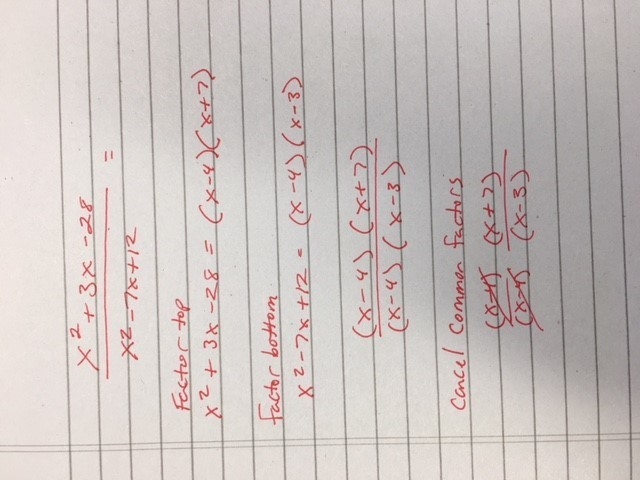 x² + 3x - 28
x² - 7x + 12 =
Factor top
x² + 3x - 28 = (x-4)(x+7)
Factor bottom
x² - 7x + 12 = (x-4)(x-3)
(x-4)(x+7)
(x-4)(x-3)
Cancel Common factors
(x-4) (x+7)
(x-4) (x-3)